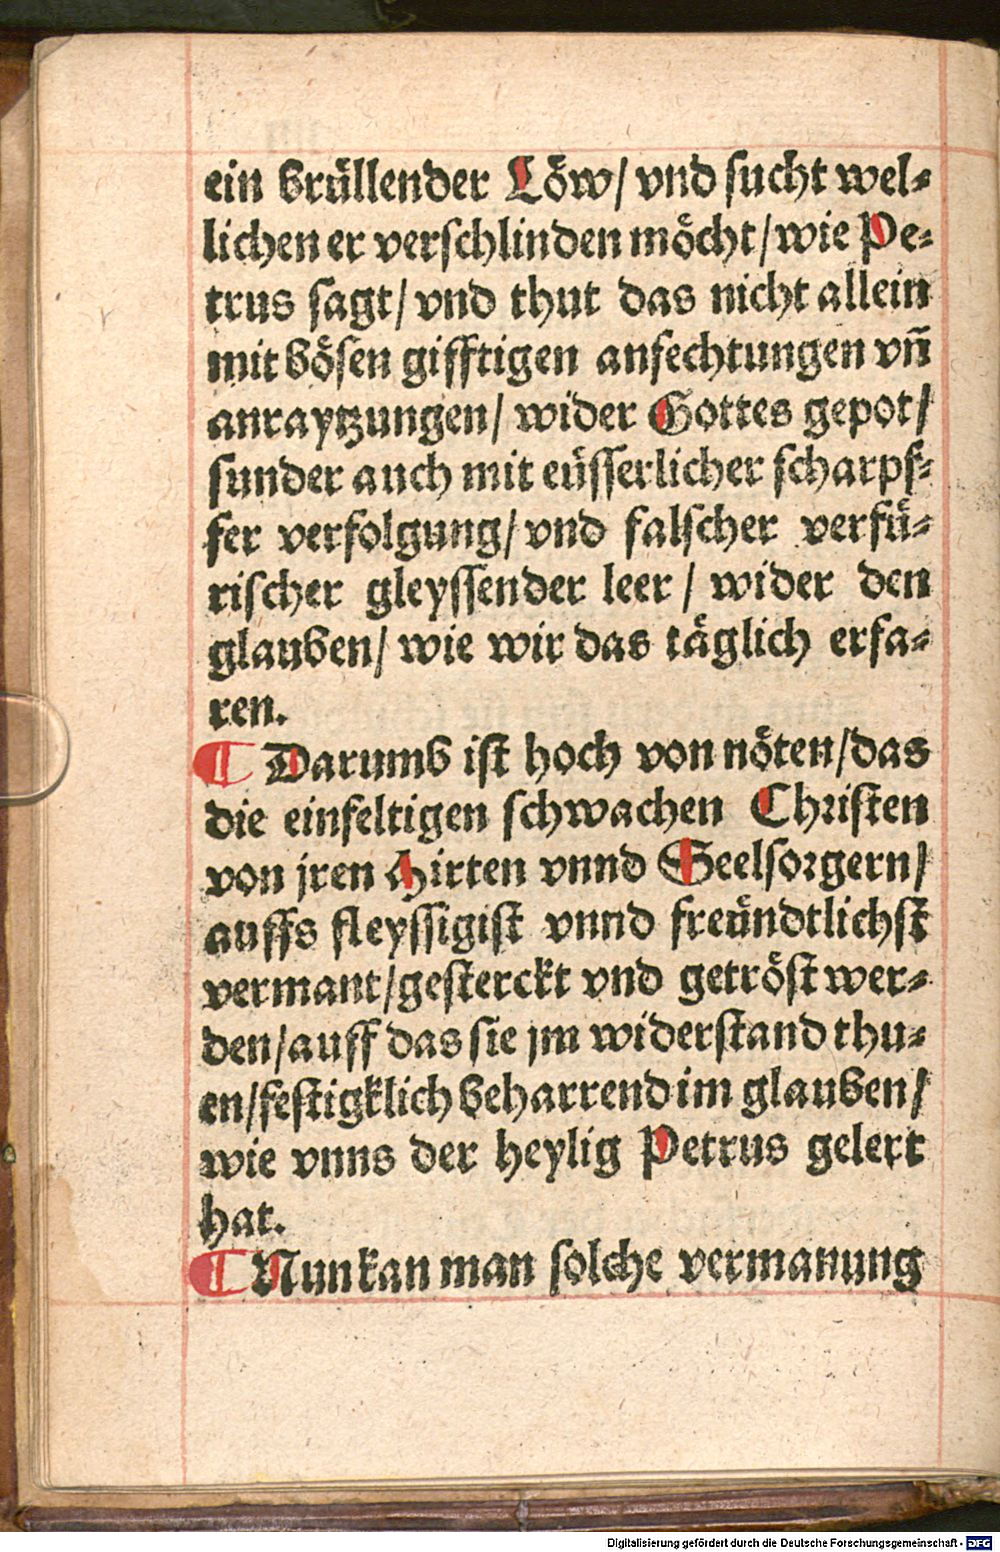 ein brüllender Löw/ vnd sucht wel⸗
lichen er verschlinden möcht/wie Pe⸗
trus sagt/ vnd thut das nicht allein
mit bösen gifftigen anfechtungen vñ
anraytzungen/ wider Gottes gepot/
sunder auch mit eüsserlicher scharpf⸗
fer verfolgung/ vnd falscher verfü⸗
rischer gleyssender leer/ wider den
glauben/ wie wir das täglich erfa⸗
ren.
¶ Darumb ist hoch von nöten/das
die einfeltigen schwachen Christen
von jren Hirten vnnd Seelsorgern/
auffs fleyssigist vnnd freündtlichst
vermant/gesterckt vnd getröst wer⸗
den/auff das sie jm widerstand thu⸗
en/festigklich beharrend im glauben/
wie vnns der heylig Petrus gelert
hat.
¶ Nun kan man solche vermanung
Digitalisierung gefördert durch die Deutsche Forschungsgemeinschaft - DFG